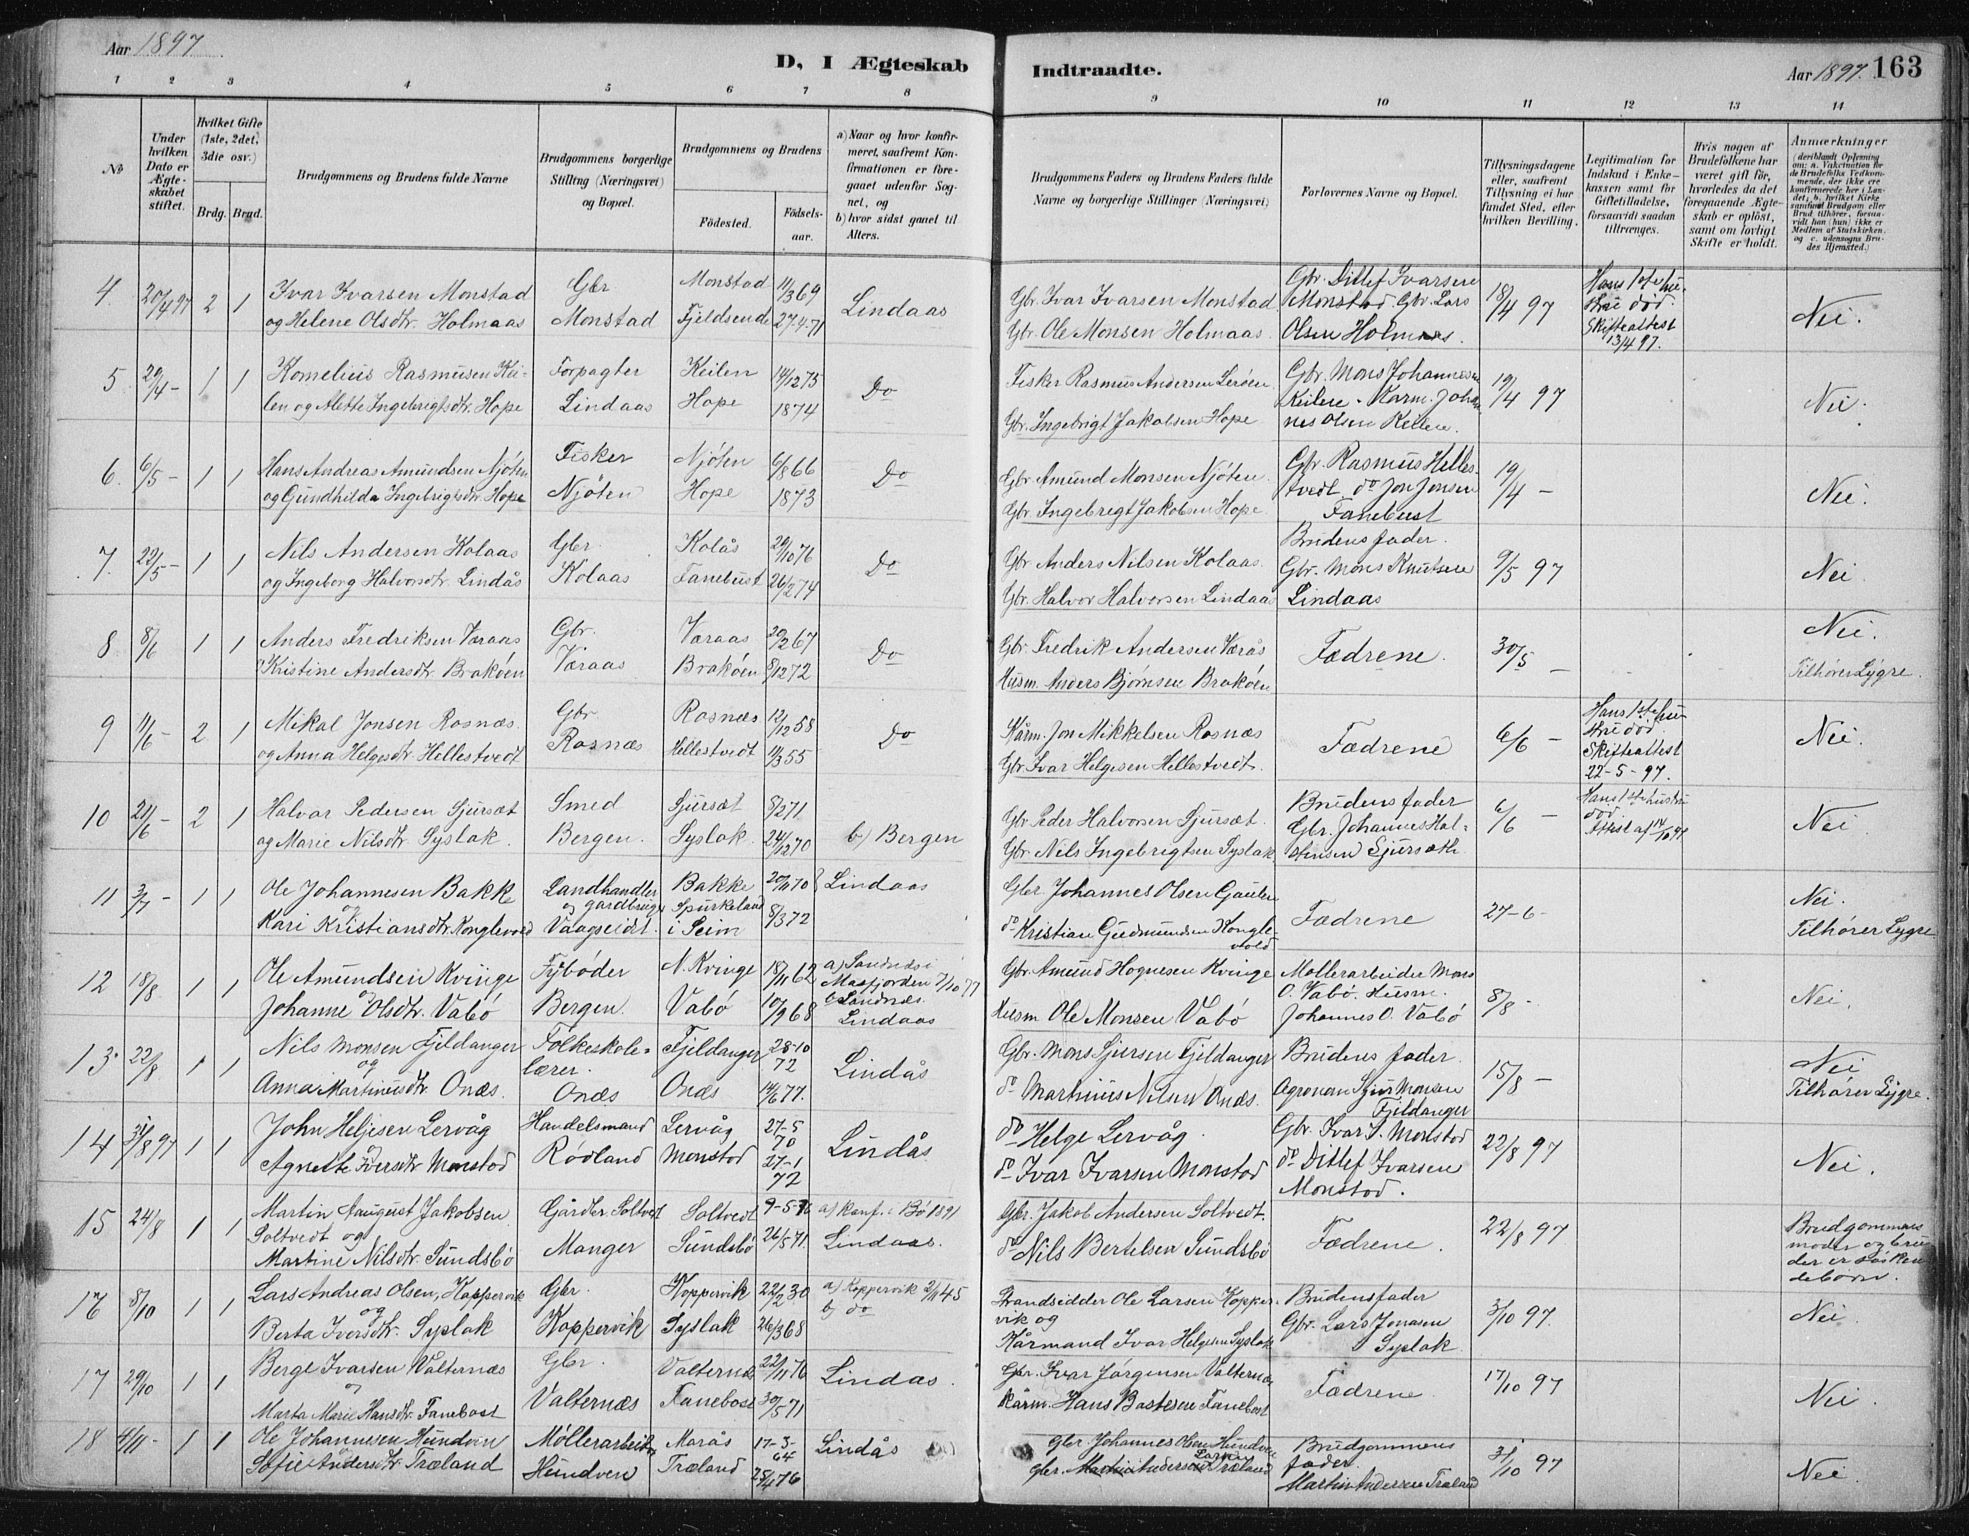 Aar 1897
D, I Ægteskab
1 2 3 4 5 6 7 8
№
Under hvilken Dato er Ægteskabet stiftet.
Hvilket Gifte (1ste, 2det, 3die osv.)
Brdg. Brud.
Brudgommens og Brudens fulde Navne
Brudgommens borgerlige Stilling (Næringsvei) og Bopæl.
Brudgommens og Brudens
Födested.
Födselsaar.
a) Naar og hvor konfirmeret, saafremt Konfirmationen er foregaaet udenfor Sognet, og
b) hvor sidst gaaet til Alters.
4 20/4 97 2 1 Ivar Ivarsen Monstad Gbr Monstad 11/3 69 Lindaas
og Helene Olsdtr. Holmaas Monstad Fjeldsende 27-4-71
5 20/4 - 1 1 Kornelius Rasmusen Kei- Forpagter Keilen 14/12 75 Do
len og Alette Ingebrigtsdtr. Hope Lindaas Hope 1874
6 6/5 - 1 1 Hans Andreas Amundsen Njöten Fisker Njöten 6/8 66 Do
og Gundhilda Ingebrigtsdtr. Hope Njöten Hope 1873
7. 22/5 - 1 1 Nils Andersen Kolaas Gbr. Kolås 20/10 76 Do
og Ingeborg Halvorsdtr. Lindås Kolaas Fanebust 26/2 74
8 8/6 1 1 Anders Fredriksen Varaas Gbr. Varaas 20/2 67 Do
Kristine Andersdtr. Braköen Varaas Braköen 9/12 72
9 11/6 - 2 1 Mikal Jonsen Rosnæs Gbr Rosnæs 12/12 58 Do
og Anna Helgesdtr. Hellestvedt Rosnæs Hellestvedt 11/3 55
10 24/6 - 2 1 Halvor Pedersen Sjursæt Smed Sjursæt 8/2 71
og Marie Nilsdtr. Syslak Bergen. Syslak 24/12 70 b) Bergen
11 3/7 - 1 1 Ole Johannesen Bakke Landhandler Bakke 20/11 70 Lindaas
og og gardbruger Spurkeland
Kari Kristiansdtr. Konglevold Vaagseidt. i Seim 8/3 72
12 18/8 1 1 Ole Amundsen Kvinge Fybøder N. Kvinge 18/11 62 a) Sandnes i
og Masfjorden 7/10 77
Johanne Olsdtr. Vabö Bergen. Vabö 10/9 68 b) Sandnæs.
Lindaas
13. 22/8 1 1 Nils Monsen Fjeldanger Folkeskole- Fjeldanger 28-10 72 Lindås
og lærer.
Anna Martinusdtr. Onæs. Onæs Onæs 14/6 77.
14 31/8 97 1 1 John Heljesen Lervåg Handelsmand Lervåg 27-5 70 Lindås
Agnette Iversdtr. Monstod Rödland Monstod 27-1 72
15 24/8 1 1 Martin August Jakobsen Gårder Soltvedt Soltvedt 9-5-76 a) Konf. i Bö 1891
Soltvedt og
Martine Nilsdtr. Sundsbö Manger Sundsbö 26/5 71 Lindaas.
16 8/10 1 1 Lars Andreas Olsen, Koppervik Gbr. Koppervik 22/2 30 a) Koppervik 2/11 45
og b) do
Berta Iversdtr. Syslak Koppervik Syslak 26/3 68
17 29/10 1 1 Berge Ivarsen Valternæs Gbr. Valternæs 22/11 76 Lindås.
Marta Marie Hansdtr. Fanebost Valternæs Fanebost 30/5 71
18 4/11 - 1 1 Ole Johannesen Hundven Möllerarbeider Marås 17-3-64 Lindås
Sofie Andersdtr. Træland Hundven Træland 28/4 76
Indtraadte.
Aar 1897. 163
9 10 11 12 13 14
Brudgommens Faders og Brudens Faders fulde Navne og borgerlige Stillinger (Næringsvei)
Forlovernes Navne og Bopæl.
Tillysningsdagene eller, saafremt Tillysning ei har fundet Sted, efter hvilken Bevilling.
Legitimation for Indskud i Enkekassen samt for Giftetilladelse, forsaavidt saadan tiltrænges.
Hvis nogen af Brudefolkene har været gift för, hvorledes da det foregaaende Ægteskab er oplöst, samt om lovligt Skifte er holdt.
Anmærkninger
(deriblandt Oplysning om: a. Vakcination for de Brudefolks Vedkommende, der ikke ere konfirmerede her i Landet; b. hvilket Kirkesamfund Brudgom eller Brud tilhörer, forsaavidt han (hun) ikke er Medlem af Statskirken, og c. udensogns Brudes Hjemsted.)
Gbr. Ivar Ivarsen Monstad Gbr. Ditlef Ivarsen 18/4 97 Hans 1ste hu- Nei.
Monstad Gbr. Lars stru död.
Gbr. Ole Monsen Holmaas. Olsen Holmaas. Skifteattest 13/4 97.
Fisker Rasmus Andersen Leröen Gbr. Mons Johannesen 19/4 97 Nei.
Keilen. Kårm. Johan-
Gbr. Ingebrigt Jakobsen Hope nes Olsen Keilen.
Gbr Amund Monsen Njöten Gbr. Rasmus Helles- 19/4 - Nei.
tvedt do Jon Jonsen
Gbr. Ingebregt Jakobsen Hope. Fanebust
Brudens fader.
Gbr Anders Nilsen Kolaas. Gbr. Mons Knutsen 9/5 97 Nei.
Gbr. Halvor Halvorsen Lindaas Lindaas
Gbr. Fredrik Andersen Verås Fædrene. 30/5 - Nei.
Husm. Anders Bjørnsen Braköen Tilhører Lygre.
Kårm. Jon Mikkelsen Rosnæs Fædrene 6/6 - Hans 1ste hu- Nei.
stru död.
Gbr Ivar Helgesen Hellestvedt. Skifteattest
22-5-97.
Gbr Peder Halvorsen Sjursæt Brudens fader 6/6 - Hans 1ste hustru Nei
Gbr. Johannes Hal- död.
Gbr. Nils Ingebrigtsen Syslak stensen Sjursæth.
Gbr. Johannes Olsen Fædrene 27-6- Nei.
do Kristian Gudmundsen Kongle- Tilhører Lygre
vold
Gbr. Amund Hognesen Kvinge Möllerarbeider Mons 8/8 - Nei.
O. Vabö. Husm.
Husm Ole Monsen Vabö Johannes O. Vabö
Gbr. Mons Sjursen Fjeldanger Brudens fader. 15/8 - Nei
do Martinus Nilsen Onæs. Agronom Sjur Monsen Tilhører Lygre.
Fjeldanger
do Helge Lervåg. Gbr. Ivar I. Monstod 22/8 97 Nei.
do Ivar Ivarsen Monstod do Ditlef Ivarsen
Monstod.
Gbr. Jakob Andersen Soltvedt. Fædrene. 22/8 97 Brudgommens
moder og bru-
do Nils Bertelsen Sundsbö der er sösken-
debörn.
Strandsidder Ole Larsen Kopper- Brudens fader 3/10 97 Nei.
vik og Gbr. Lars Jonasen
Kårmand Ivar Helgesen Syslak Syslak
Gbr. Ivar Jørgensen Valternæs Fædrene. 17/10 97 Nei.
Kårm. Hans Bastesen Fanebost
Gbr. Johannes Olsen Hundven Brudgommens 31/10 97
Gbr. Martin Andersen Træland fader. Nei.
Martin Andersen Træland